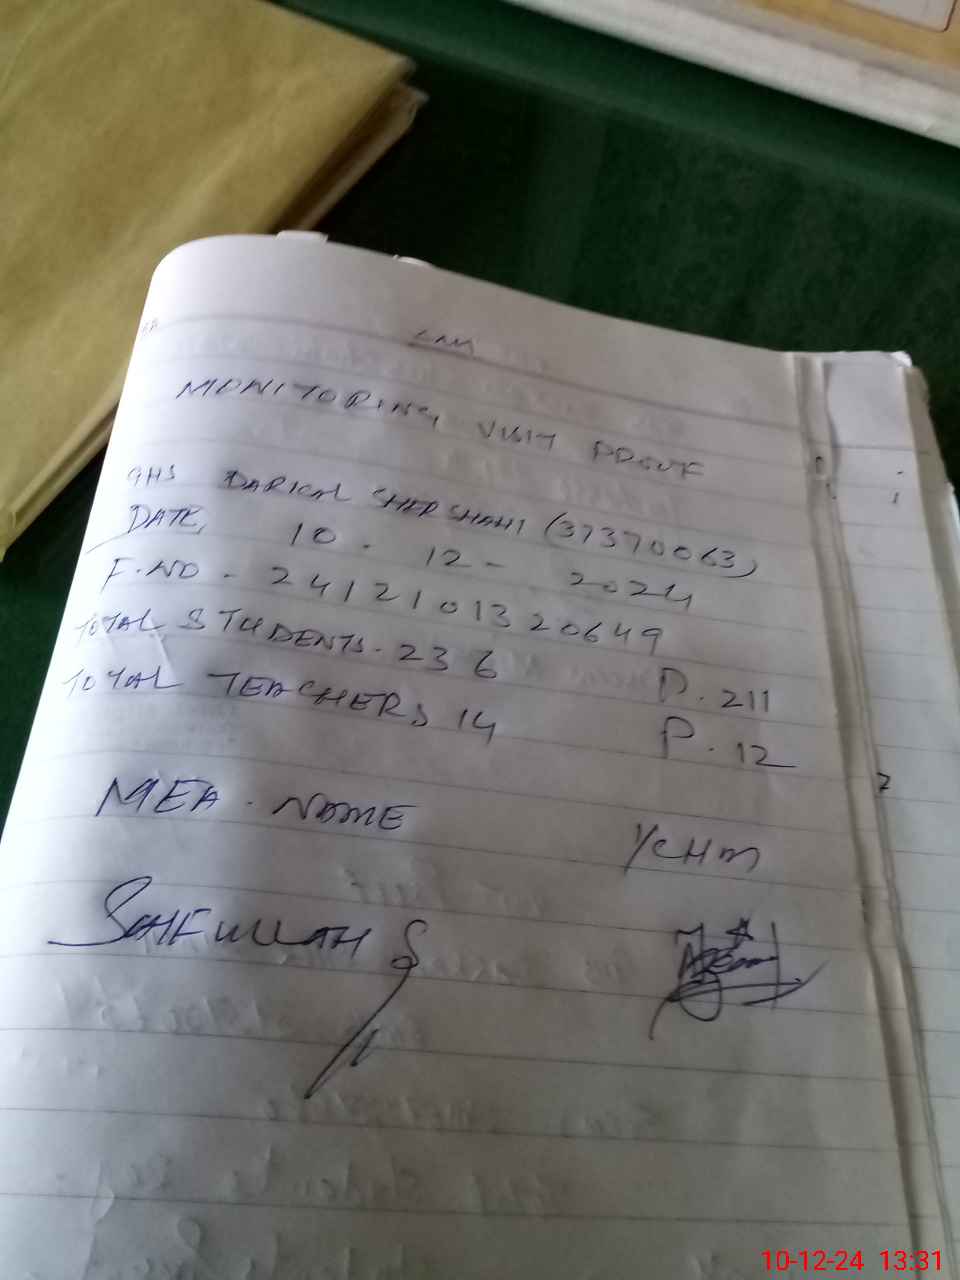 MONITORING VISIT PROUF
GHS DARKAL SHER SHAHI (37370063)
DATE, 10 - 12 - 2024
F.NO - 2412101320649
TOTAL STUDENTS. 236 P. 211
TOTAL TEACHERS 14 P. 12
MEA. NAME
I/CHM
SAHFULLAH
10-12-24 13:31